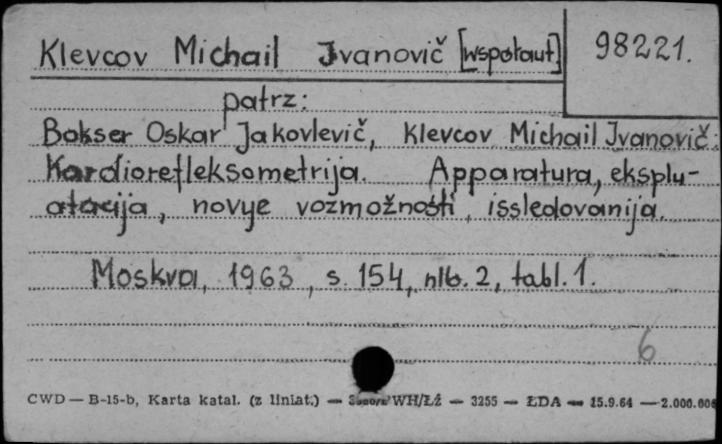 Klevcov Michail Ivanovič [współaut] 98221.
patrz:
Bokser Oskar Jakovlevič, Klevcov Michail Ivanovič.
Kardiorefleksometrija. Apparatura, eksplu-
atacija, novye vozmožnosti issledovanija.
Moskva, 1963, s. 154, nlb. 2, tabl. 1.
6
CWD — B-15-b, Karta katal. (z liniat.) — WH/Łź — 3255 — ŁDA — 15.9.64 — 2.000.000